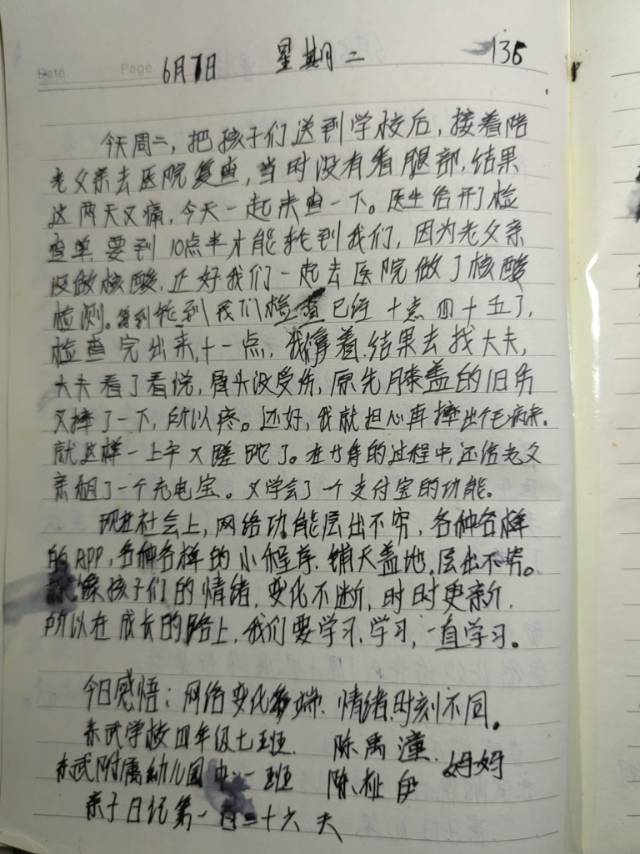 Date Page 6月7日 星期二 136
今天周二，把孩子们送到学校后，接着陪
老父亲去医院复查，当时没有看腿部，结果
这两天又痛，今天一起来查一下。医生给开了检
查单要到10点半才能轮到我们，因为老父亲
没做核酸，正好我们一起去医院做了核酸
检测。等到轮到我们检查已经十点四十五了，
检查完出来，十一点，我拿着结果去找大夫，
大夫看了看说，骨头没受伤，原先膝盖的旧伤
又摔了一下，所以疼。还好，我就担心再摔出个毛病来。
就这样一上午又蹉跎了。在等待的过程中，还给老父
亲租了一个充电宝。又学会了一个支付宝的功能。
现在社会上，网络功能层出不穷，各种各样
的APP，各种各样的小程序，铺天盖地，层出不穷。
就像孩子们的情绪，变化不断，时时更新，
所以在成长的路上，我们要学习，学习，一直学习。
今日感悟：网络变化多端，情绪时刻不同。
赤武学校四年级七班 陈禹潼 妈妈
赤武附属幼儿园中一班 陈祉伊
亲子日记第一百三十六天